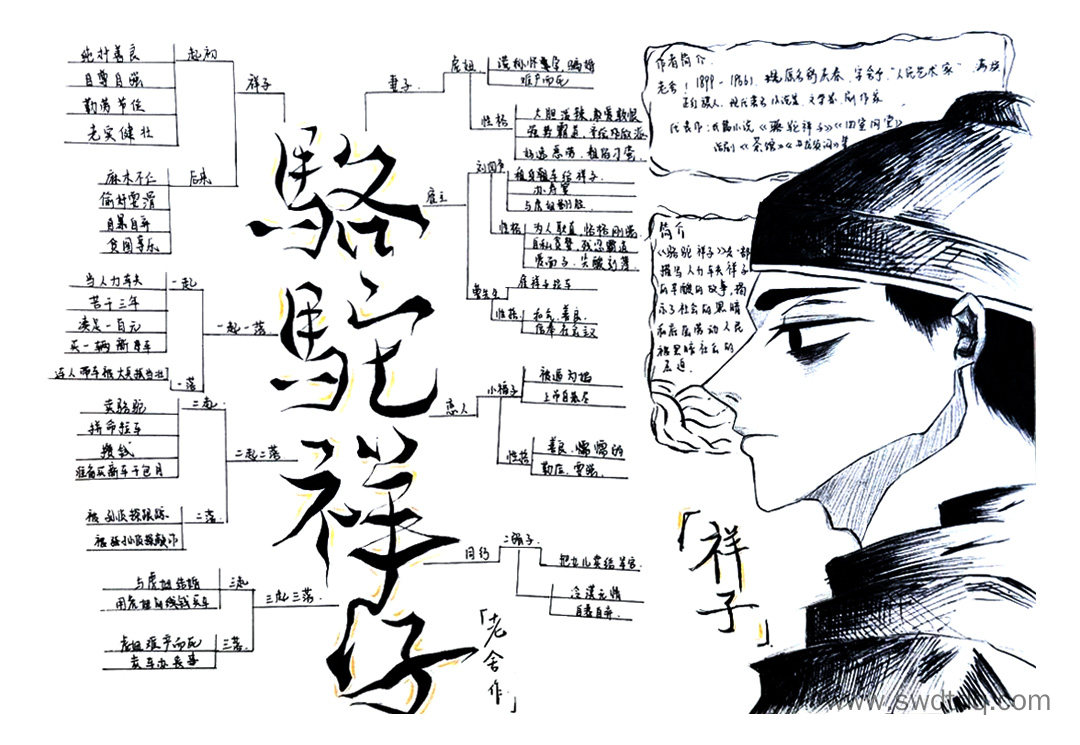 駱駝祥子
「老舍作」
祥子
起初
纯朴善良
自尊自强
勤劳节俭
老实健壮
后来
麻木不仁
偷奸耍滑
自暴自弃
贪图享乐
一起一落
一起
当人力车夫
苦干三年
凑足一百元
买一辆新车
一落
连人带车被大兵抓当壮丁
二起二落
二起
卖骆驼
拼命拉车
攒钱
准备买新车干包月
二落
被孙侦探跟踪
被孙侦探敲诈
三起三落
三起
与虎妞结婚
用虎妞的钱买车
三落
虎妞难产而死
卖车办丧事
妻子
虎妞
难产而死
性格
大胆泼辣
好逸恶劳、粗俗刁蛮
雇主
刘四爷
租自己车给祥子
办寿宴
与虎妞
性格
为人耿直、性格刚强
自私贪婪、残忍霸道
爱面子、尖酸刻薄
曹先生
雇祥子拉车
性格
和气、善良
信奉社会主义
恋人
小福子
被逼为娼
上吊自尽
性格
善良、懦弱的
勤俭、要强
同行
二强子
把女儿卖给军官
冷漠无情
自暴自弃
作者简介
老舍(1899-1966),原名舒庆春、字舍予、"人民艺术家"、满族
正红旗人、现代著名小说家、文学家、剧作家
代表作:长篇小说《骆驼祥子》《四世同堂》
话剧《茶馆》《龙须沟》等
简介
《骆驼祥子》是一部
描写人力车夫祥子
的辛酸的故事,揭
示了社会的黑暗
和底层劳动人民
被黑暗社会的
压迫
「祥子」